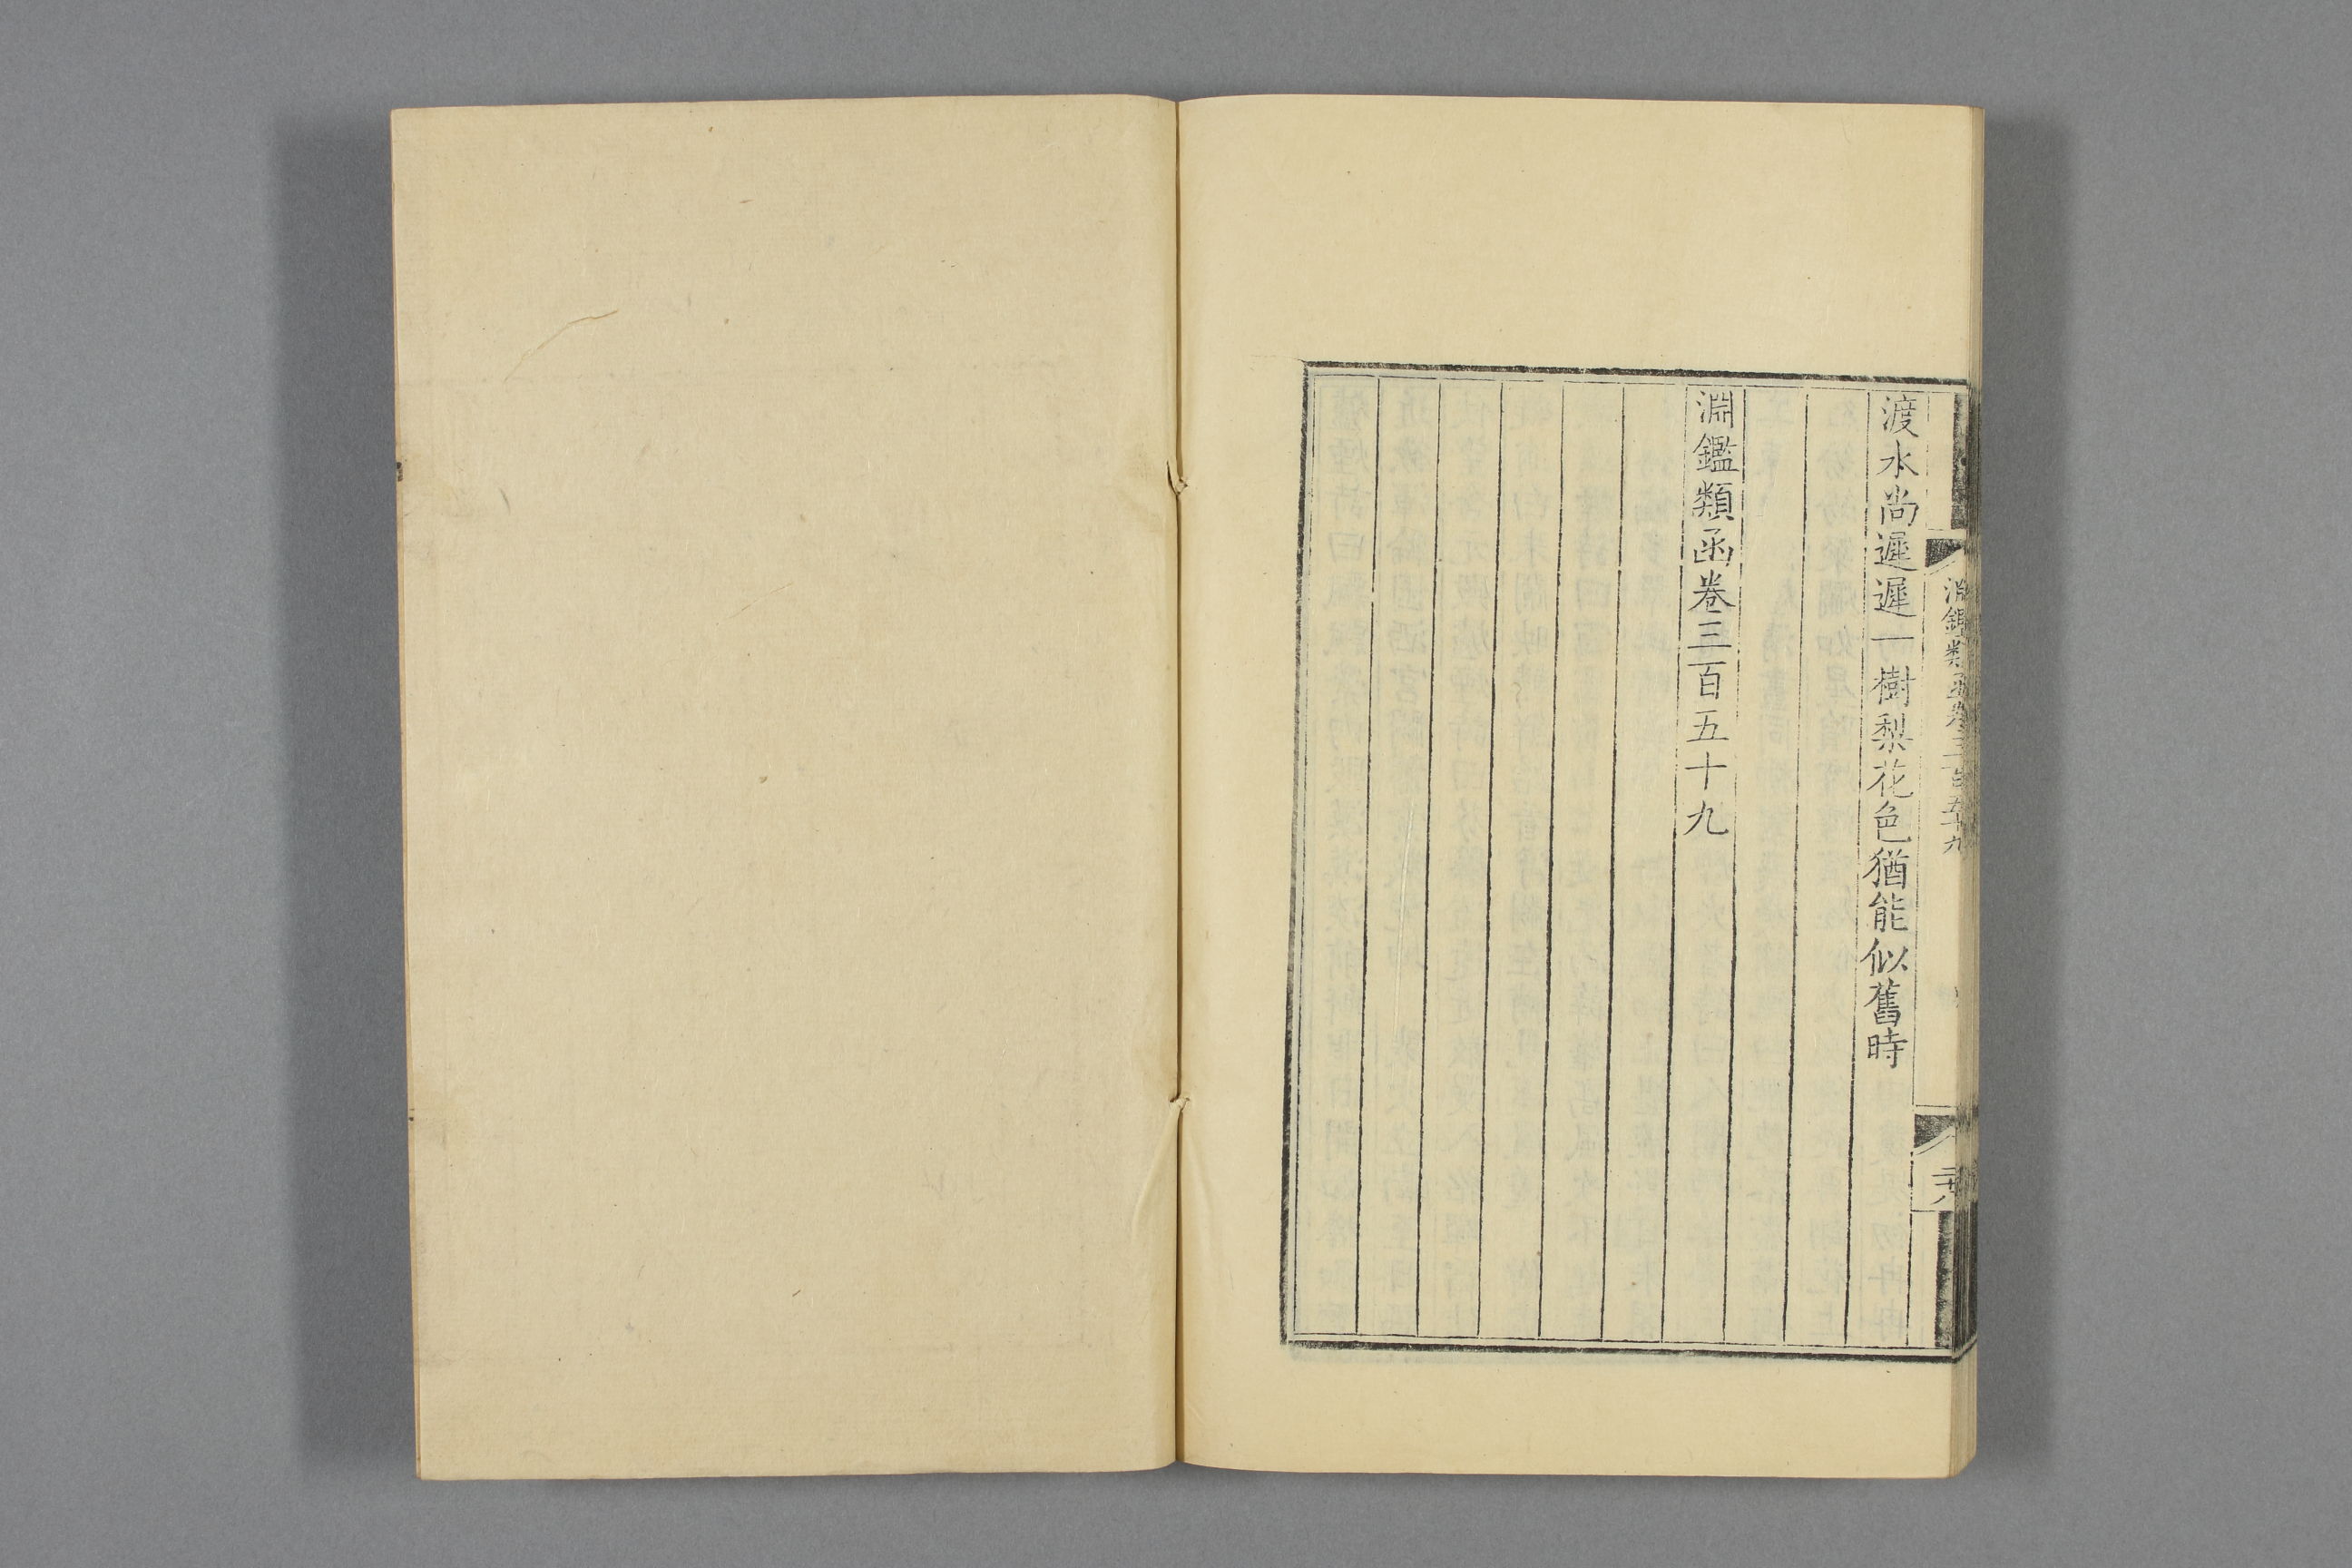 渡水尚遲遲一樹梨花色猶能似舊時
淵鑑類函卷三百五十九
淵鑑類函卷三百五十九